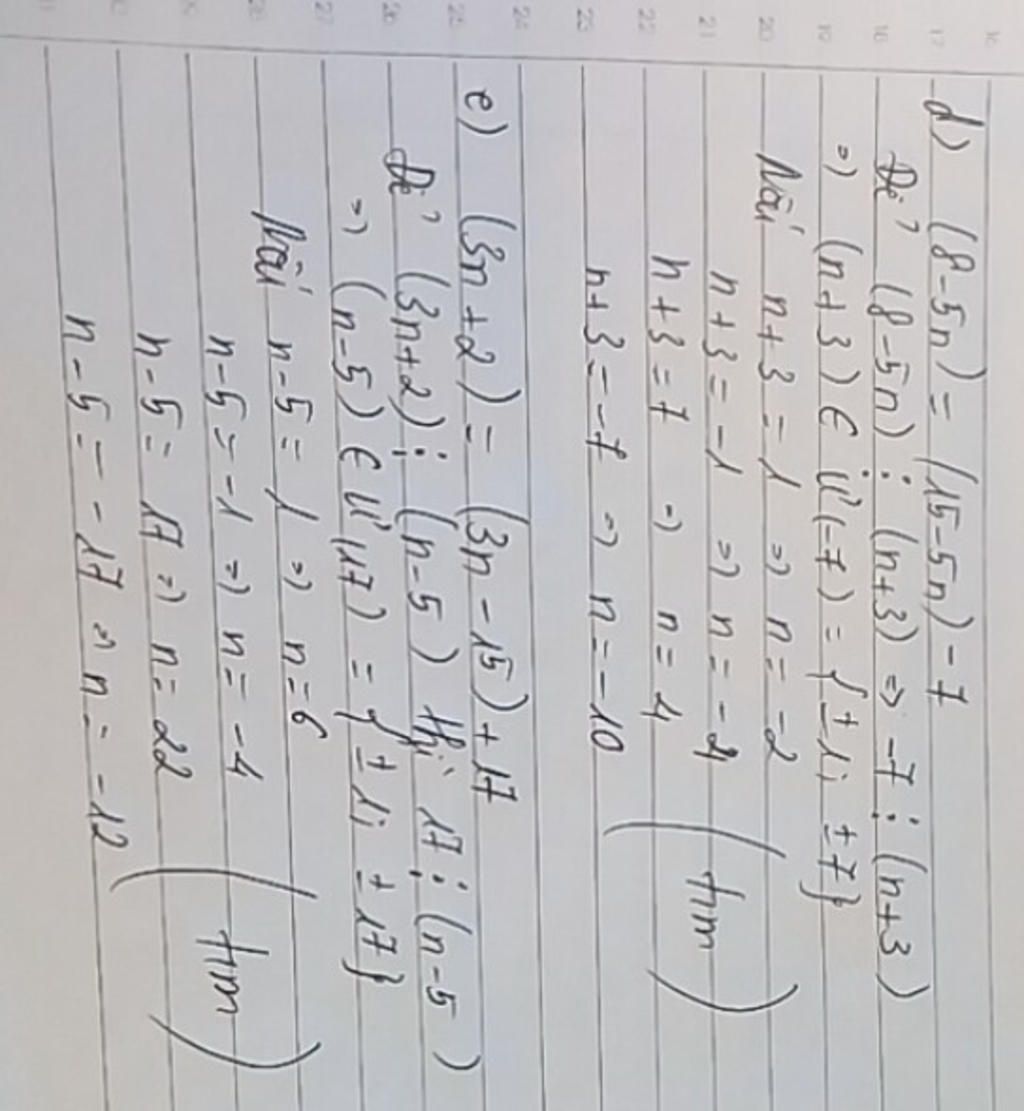 d) (8-5n) = (15-5n) - 7
Để (8-5n) ⋮ (n+3) => -7 ⋮ (n+3)
=> (n+3) ∈ Ư(-7) = {±1; ±7}
Nếu n+3 = 1 => n = -2
n+3 = -1 => n = -4
n+3 = 7 => n = 4
n+3 = -7 => n = -10
(t/m)
e) (3n+2) = (3n-15) + 17
Để (3n+2) ⋮ (n-5) thì 17 ⋮ (n-5)
=> (n-5) ∈ Ư(17) = {±1; ±17}
Nếu n-5 = 1 => n = 6
n-5 = -1 => n = -4
n-5 = 17 => n = 22
n-5 = -17 => n = -12
(t/m)